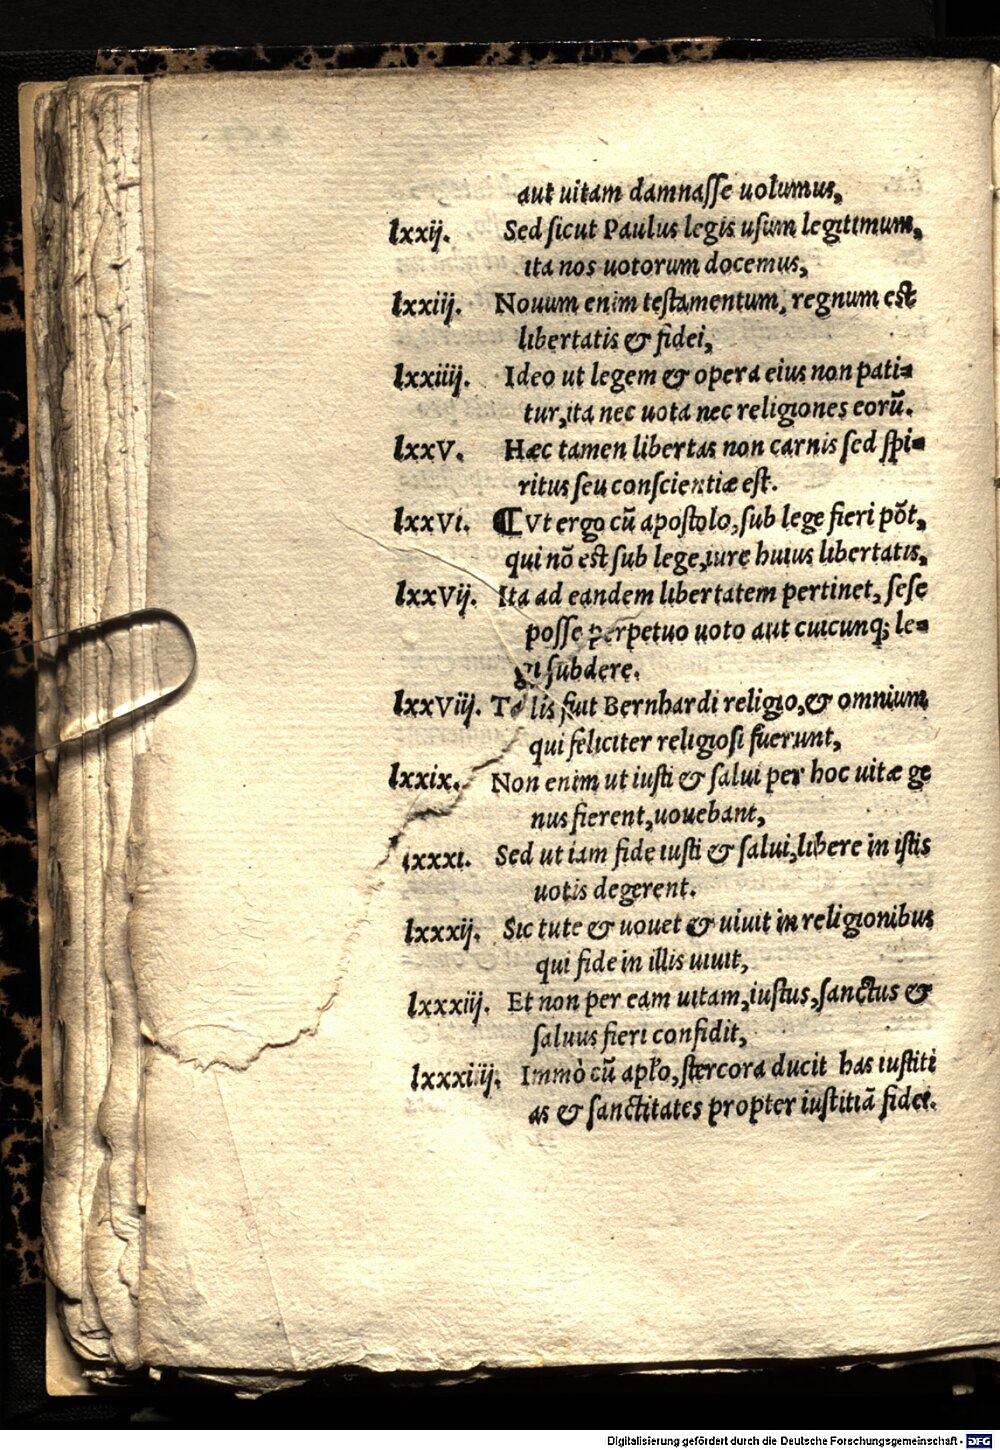 aut uitam damnasse uolumus,
lxxij. Sed sicut Paulus legis usum legitimum,
ita nos uotorum docemus,
lxxiij. Nouum enim testamentum, regnum est
libertatis & fidei,
lxxiiij. Ideo ut legem & opera eius non pati=
tur, ita nec uota nec religiones eorū.
lxxV. Hæc tamen libertas non carnis sed spi=
ritus seu conscientiæ est.
lxxVi. ¶ Vt ergo cū apostolo, sub lege fieri põt,
qui nõ est sub lege, iure huius libertatis,
lxxVij. Ita ad eandem libertatem pertinet, sese
posse perpetuo uoto aut cuicunq; le=
gi subdere.
lxxViij. Talis fuit Bernhardi religio, & omnium
qui feliciter religiosi fuerunt,
lxxix. Non enim ut iusti & salui per hoc uitæ ge
nus fierent, uouebant,
lxxxi. Sed ut iam fide iusti & salui, libere in istis
uotis degerent.
lxxxij. Sic tute & uouet & uiuit in religionibus
qui fide in illis uiuit,
lxxxiij. Et non per eam uitam, iustus, sanctus &
saluus fieri confidit,
lxxxiiij. Immò cū apło, stercora ducit has iustiti
as & sanctitates propter iustitiã fidei.
Digitalisierung gefördert durch die Deutsche Forschungsgemeinschaft - DFG